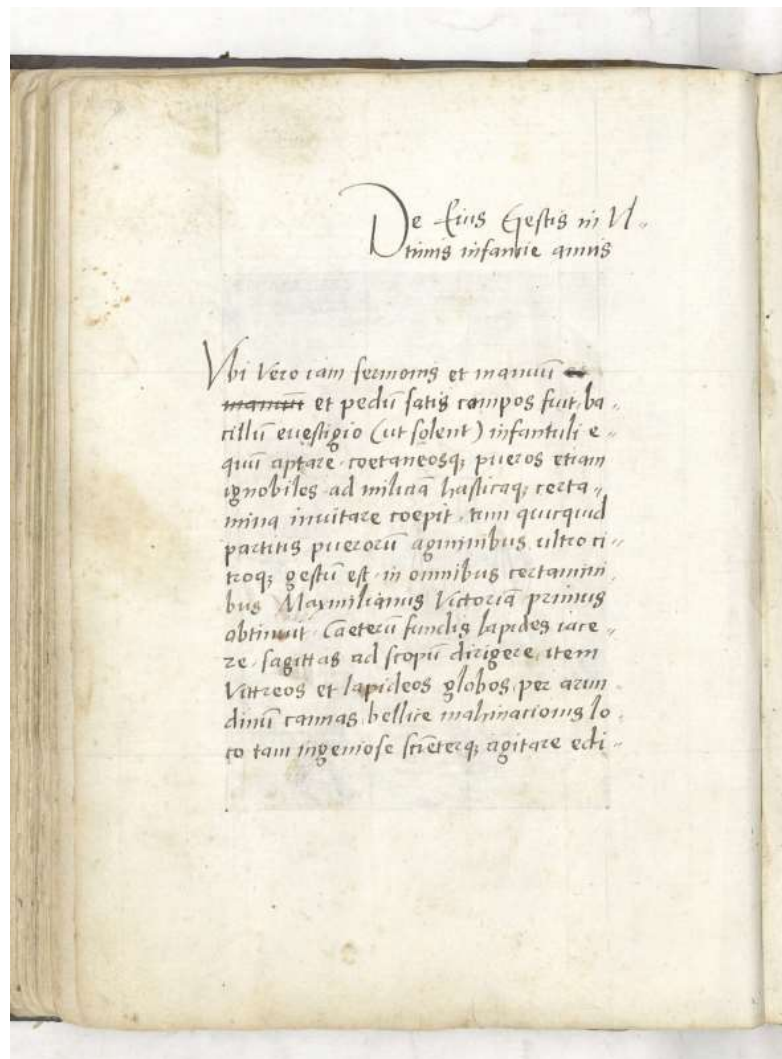 De Eius Gestis in Vl„
timis infantie annis
Vbi Vero iam sermonis et manuū et
manuū et pedū satis compos fuit, ba„
cillū evestigio (ut solent) infantuli e„
quū aptare coetaneosq; pueros etiam
ignobiles ad miliciā hasticaq; certa„
mina invitare coepit, tum quicquid
partitis puerorū agminibus ultro ci„
troq; gestū est in omnibus certamini„
bus Maximilianus Victoriā primus
obtinuit. Caeterū fundis lapides iace„
re, sagittas ad scopū dirigere, item
Vittreos et lapideos globos per arun„
dinū cannas, bellice mahinacionis lo„
co tam ingeniose sciēterq; agitare edi„